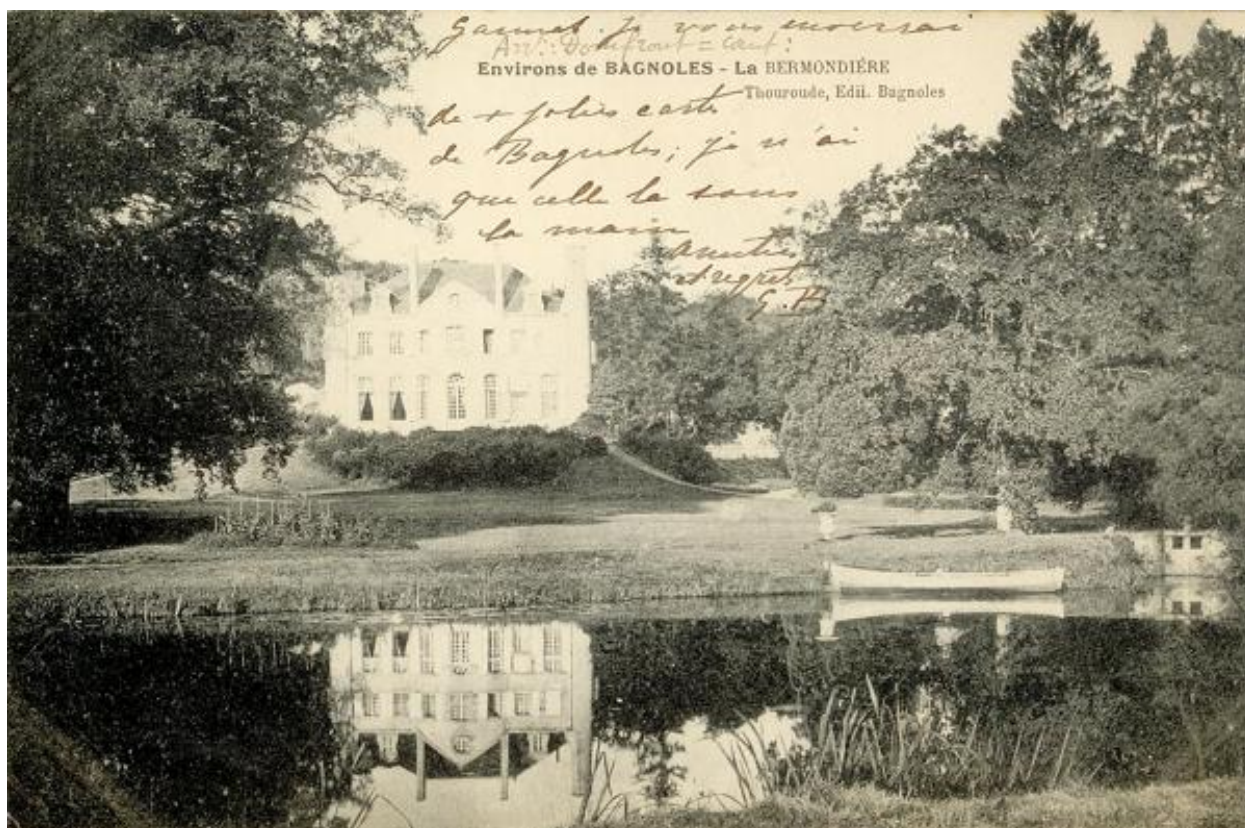 je vous
Arr.t Domfront = Cout:
Environs de BAGNOLES - La BERMONDIÉRE
Thouroude, Edit. Bagnoles
de + jolies carte
de Bagnoles; je n'ai
que celle la sous
la main
amitiés
et regrets
G. B